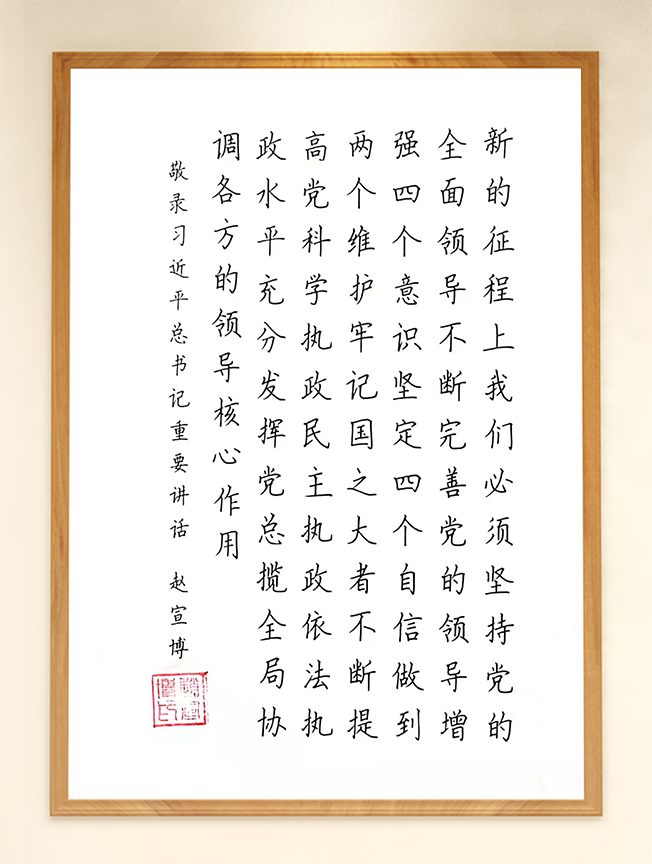 新的征程上我们必须坚持党的
全面领导不断完善党的领导增
强四个意识坚定四个自信做到
两个维护牢记国之大者不断提
高党科学执政民主执政依法执
政水平充分发挥党总揽全局协
调各方的领导核心作用
敬录习近平总书记重要讲话 赵宣博